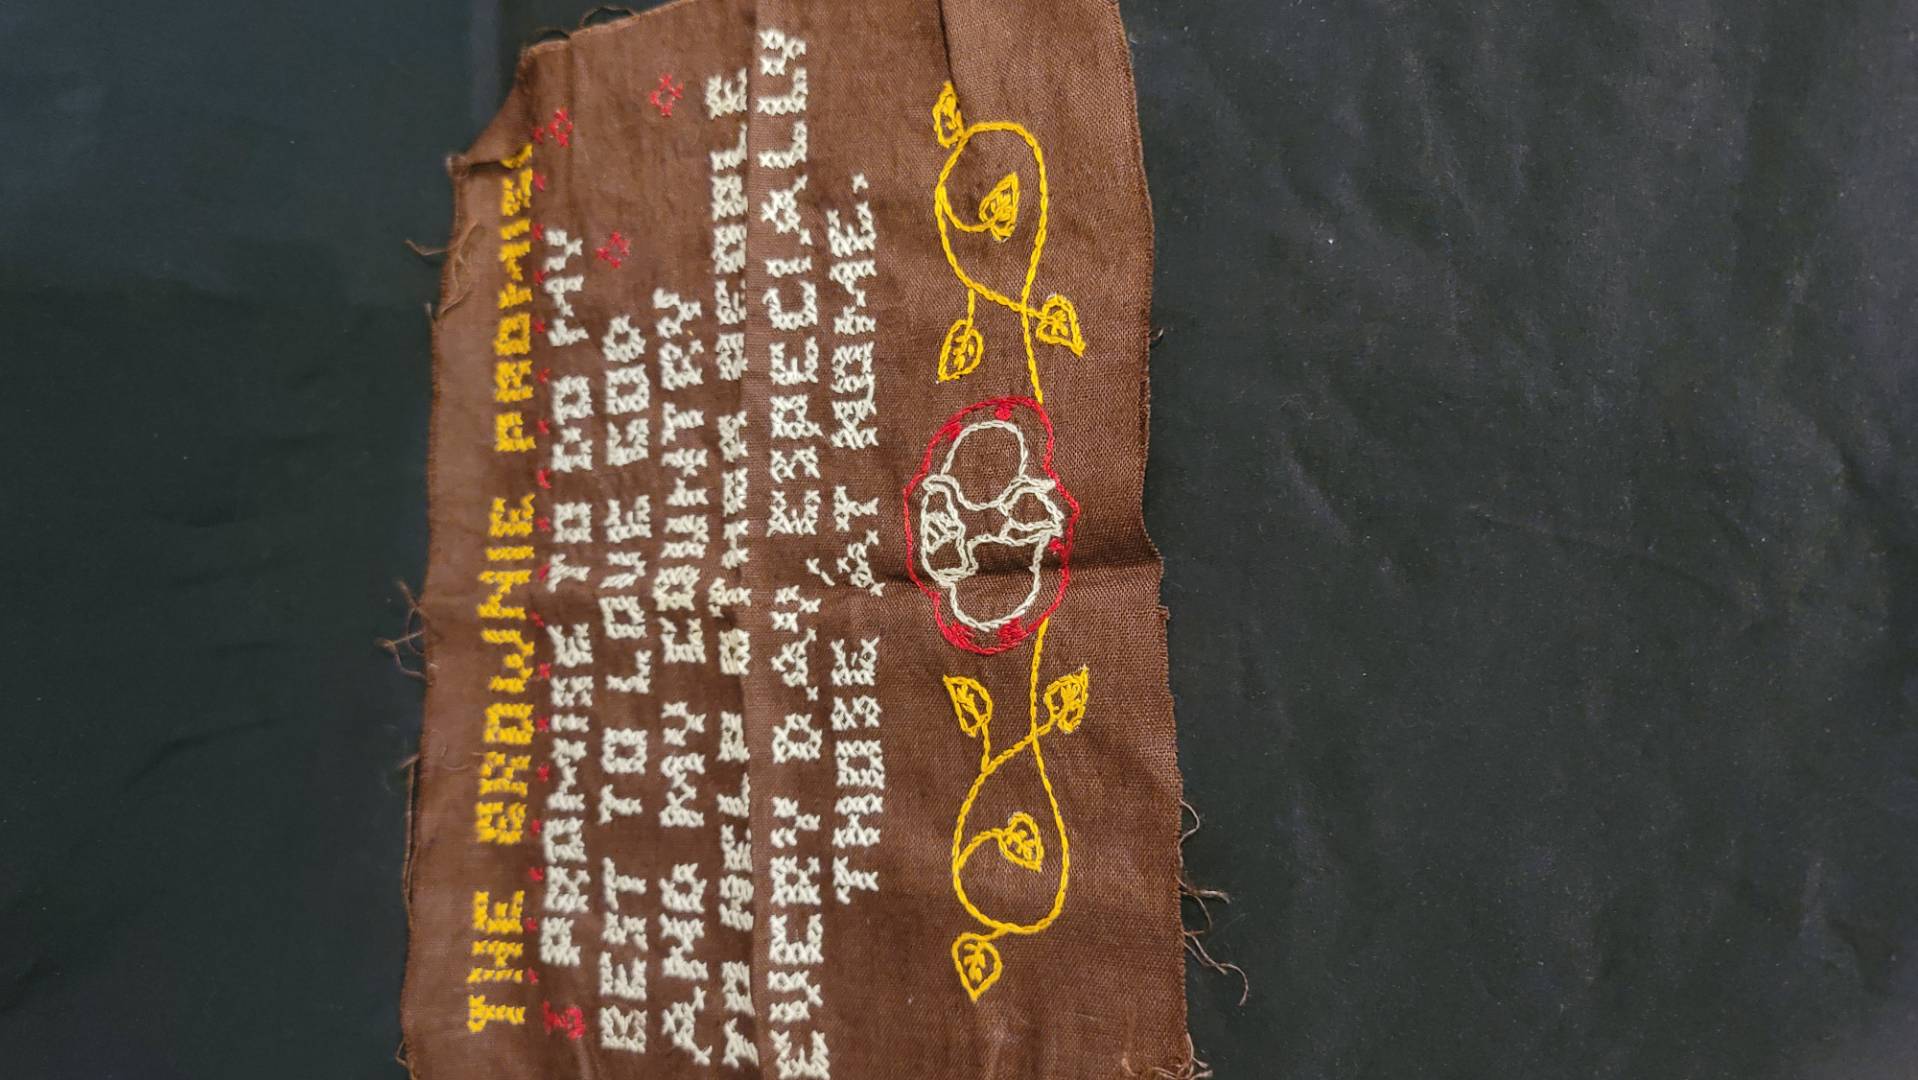 THE BROWNIE PROMISE
I PROMISE TO DO MY
BEST TO LOVE GOD
AND MY COUNTRY
TO HELP OTHER PEOPLE
EVERY DAY, ESPECIALLY
THOSE AT HOME.